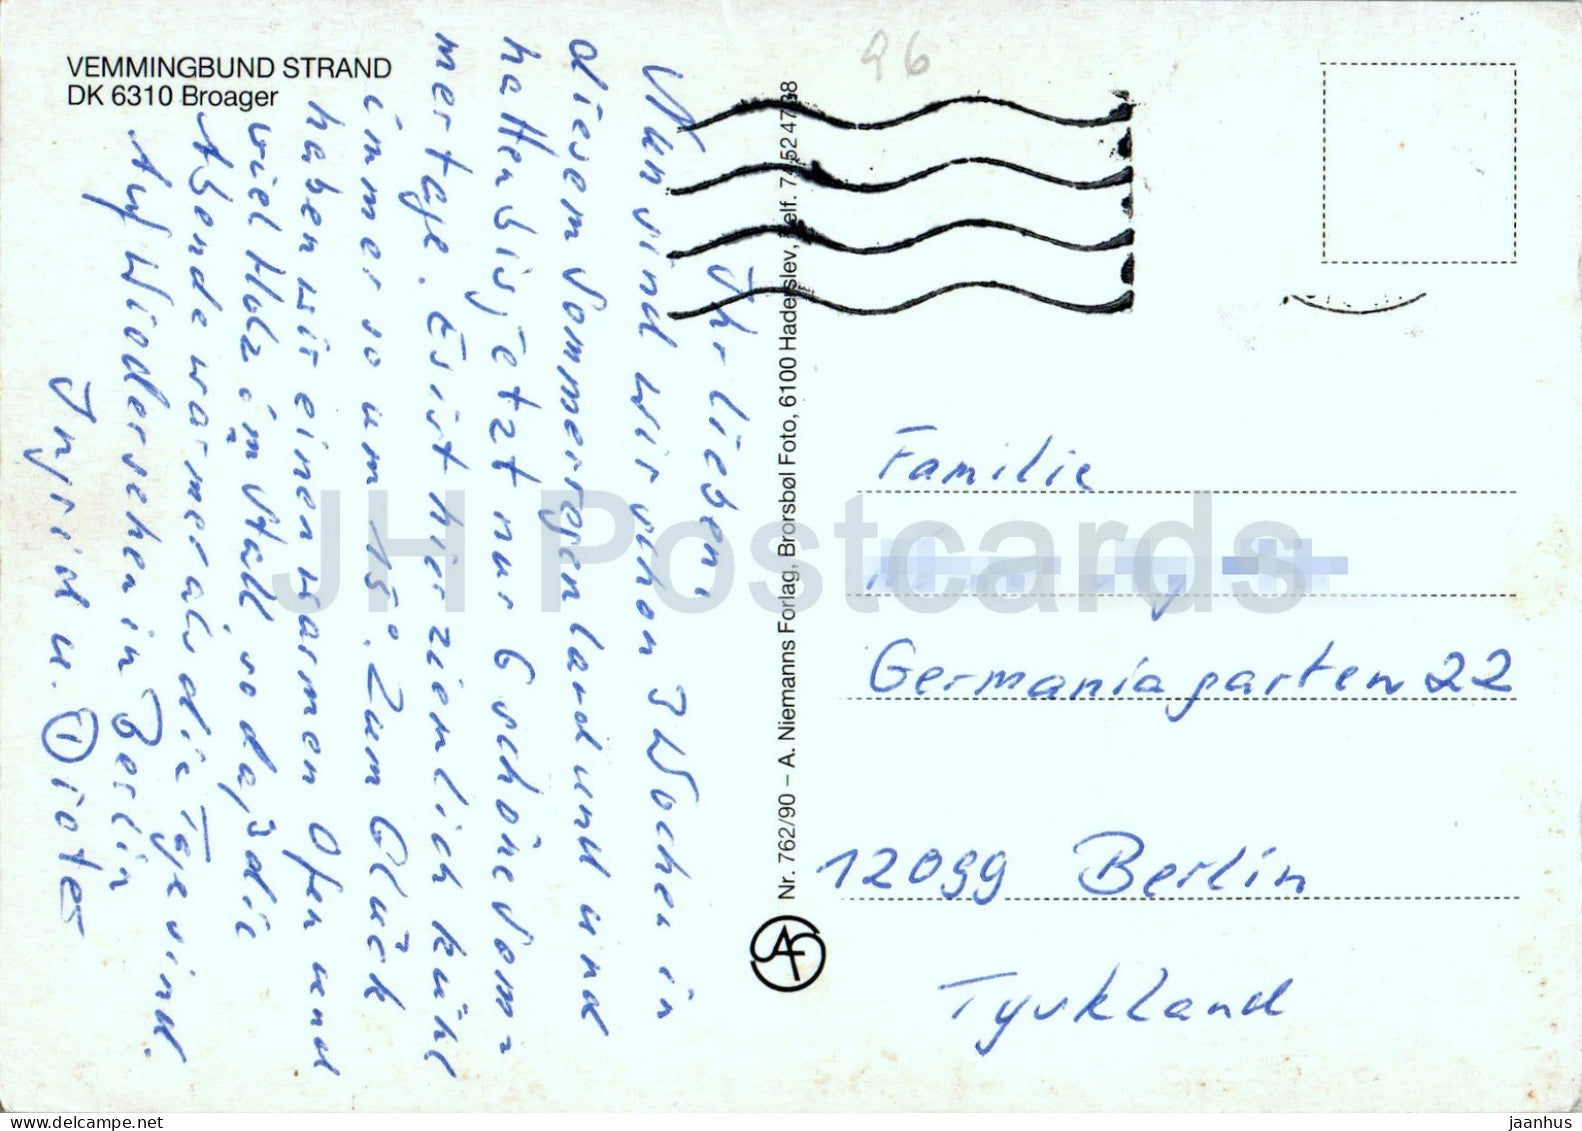 VEMMINGBUND STRAND
DK 6310 Broager
96
Ihr Lieben,
Nun sind wir schon 3 Wochen in
diesem Sommerregenland und
hatten bisjetzt nur 6 schöne Som-
mertage. Es ist hier ziemlich kühl
immer so um 15°. Zum Glück
haben wir einen warmen Ofen und
viel Holz im Stall, so daß die
Abende wärmer als die Tage sind.
Auf Wiedersehen in Berlin
Ingrid u. Dieter
Nr. 762/90 – A. Niemanns Forlag, Brorsbøl Foto, 6100 Haderslev,
Familie
Germaniagarten 22
12099 Berlin
Tyskland
JH Postcards
delcampe.net
jaanhus